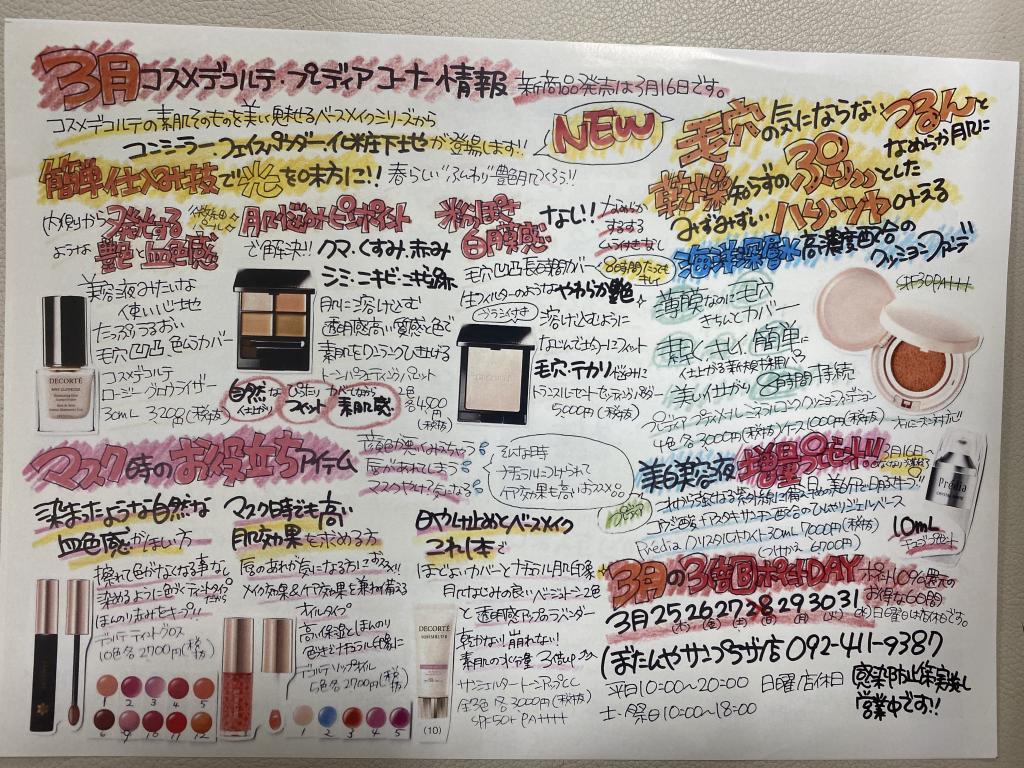 3月コスメデコルテ・プレディアコーナー情報 新商品発売は3月16日です。
コスメデコルテの素肌そのものを美しく魅せるベースメイクシリーズから
コンシーラー、フェイスパウダー、化粧下地が登場します!!
NEW
簡単仕込み技で光を味方に!! 春らしい"ふんわり"艶肌つくろう!!
内側から発光する
ような艶・血色感
美容液みたいな
使い心地
たっぷりうるおい
毛穴凹凸色ムラカバー
コスメデコルテ
ロージーグロウライザー
30mL 3,200(税抜)
DECORTÉ
肌悩みピンポイント
で解決!! クマ、くすみ、赤み
シミ・ニキビ・毛細血管
肌に溶け込む
透明感高い質感と色で
素肌を1ランク引き上げる
トーンパーフェクティングパレット
2色
各4500円
(税抜)
自然な仕上がり
ぴったりフィット
カバーしながら素肌感
粉っぽさ
白膜感 なし!!
するする
ムラ付きなし
毛穴凹凸長時間カバー
8時間たっても
キレイ
生フィルターのようなやわらか艶
ブラシ付き
溶け込むように
なじんでぴたりとフィット
毛穴・テカリ悩みに
5000円(税抜)
毛穴の気にならないつるんと
なめらか肌に
乾燥知らずのプルッとした
みずみずしいハリ・ツヤ叶える
海洋深層水高濃度配合の
クッションファンデ
SPF30PA+++
薄膜なのに毛穴
きちんとカバー
素早くキレイ簡単に
仕上がる新技術特殊パフ
美しい仕上がり8時間持続
4色各3000円(税抜)ケース1000円(税抜)
マスク時のお役立ちアイテム
顔色が悪くみえちゃう
唇があれてしまう
マスクやけ?気になる
そんな時
ナチュラルにつけられて
ケア効果も高いおススメ品
染まったような自然な
血色感がほしい方
擦れて色がなくなる事なく
染めるように色づくティントタイプだから
ほんのり赤みをキープ!!
デコルテ ティントグロス
10色各2700円(税抜)
1 2 3 4 5
6 9 10 11 12
マスク時でも高い
肌効果を求める方
唇のあれが気になる方におススメ!!
メイク効果&ケア効果を兼ね備える
オイルタイプ
高い保湿としほんのり
色づきナチュラル印象に
デコルテ リップオイル
5色各2700円(税抜)
1 2 3 4 5
日やけ止めとベースメイク
これ1本で
ほどよいカバーとナチュラル肌印象
肌なじみの良いベージュトーン2色
と透明感アップラベンダー
乾かない崩れない!
素肌の水分量3倍up
サンシェルター トーンアップCC
全3色各3000円(税抜)
SPF50+PA++++
DECORTÉ
SUN SHELTER
(10)
美白美容液増量プレゼント!!
3月16日~
30mL 7000円(税抜)
つけかえ6700円(税抜)
Prédia
10mL
3月の3倍ポイントDAY
3月25,26,27,28,29,30,31
日曜日は休みです。
(ぼたんやサンプラザ店 092-411-9387
平日10:00~20:00 日曜店休日
土・祭日10:00~18:00
感染防止策実施し
営業中です!!